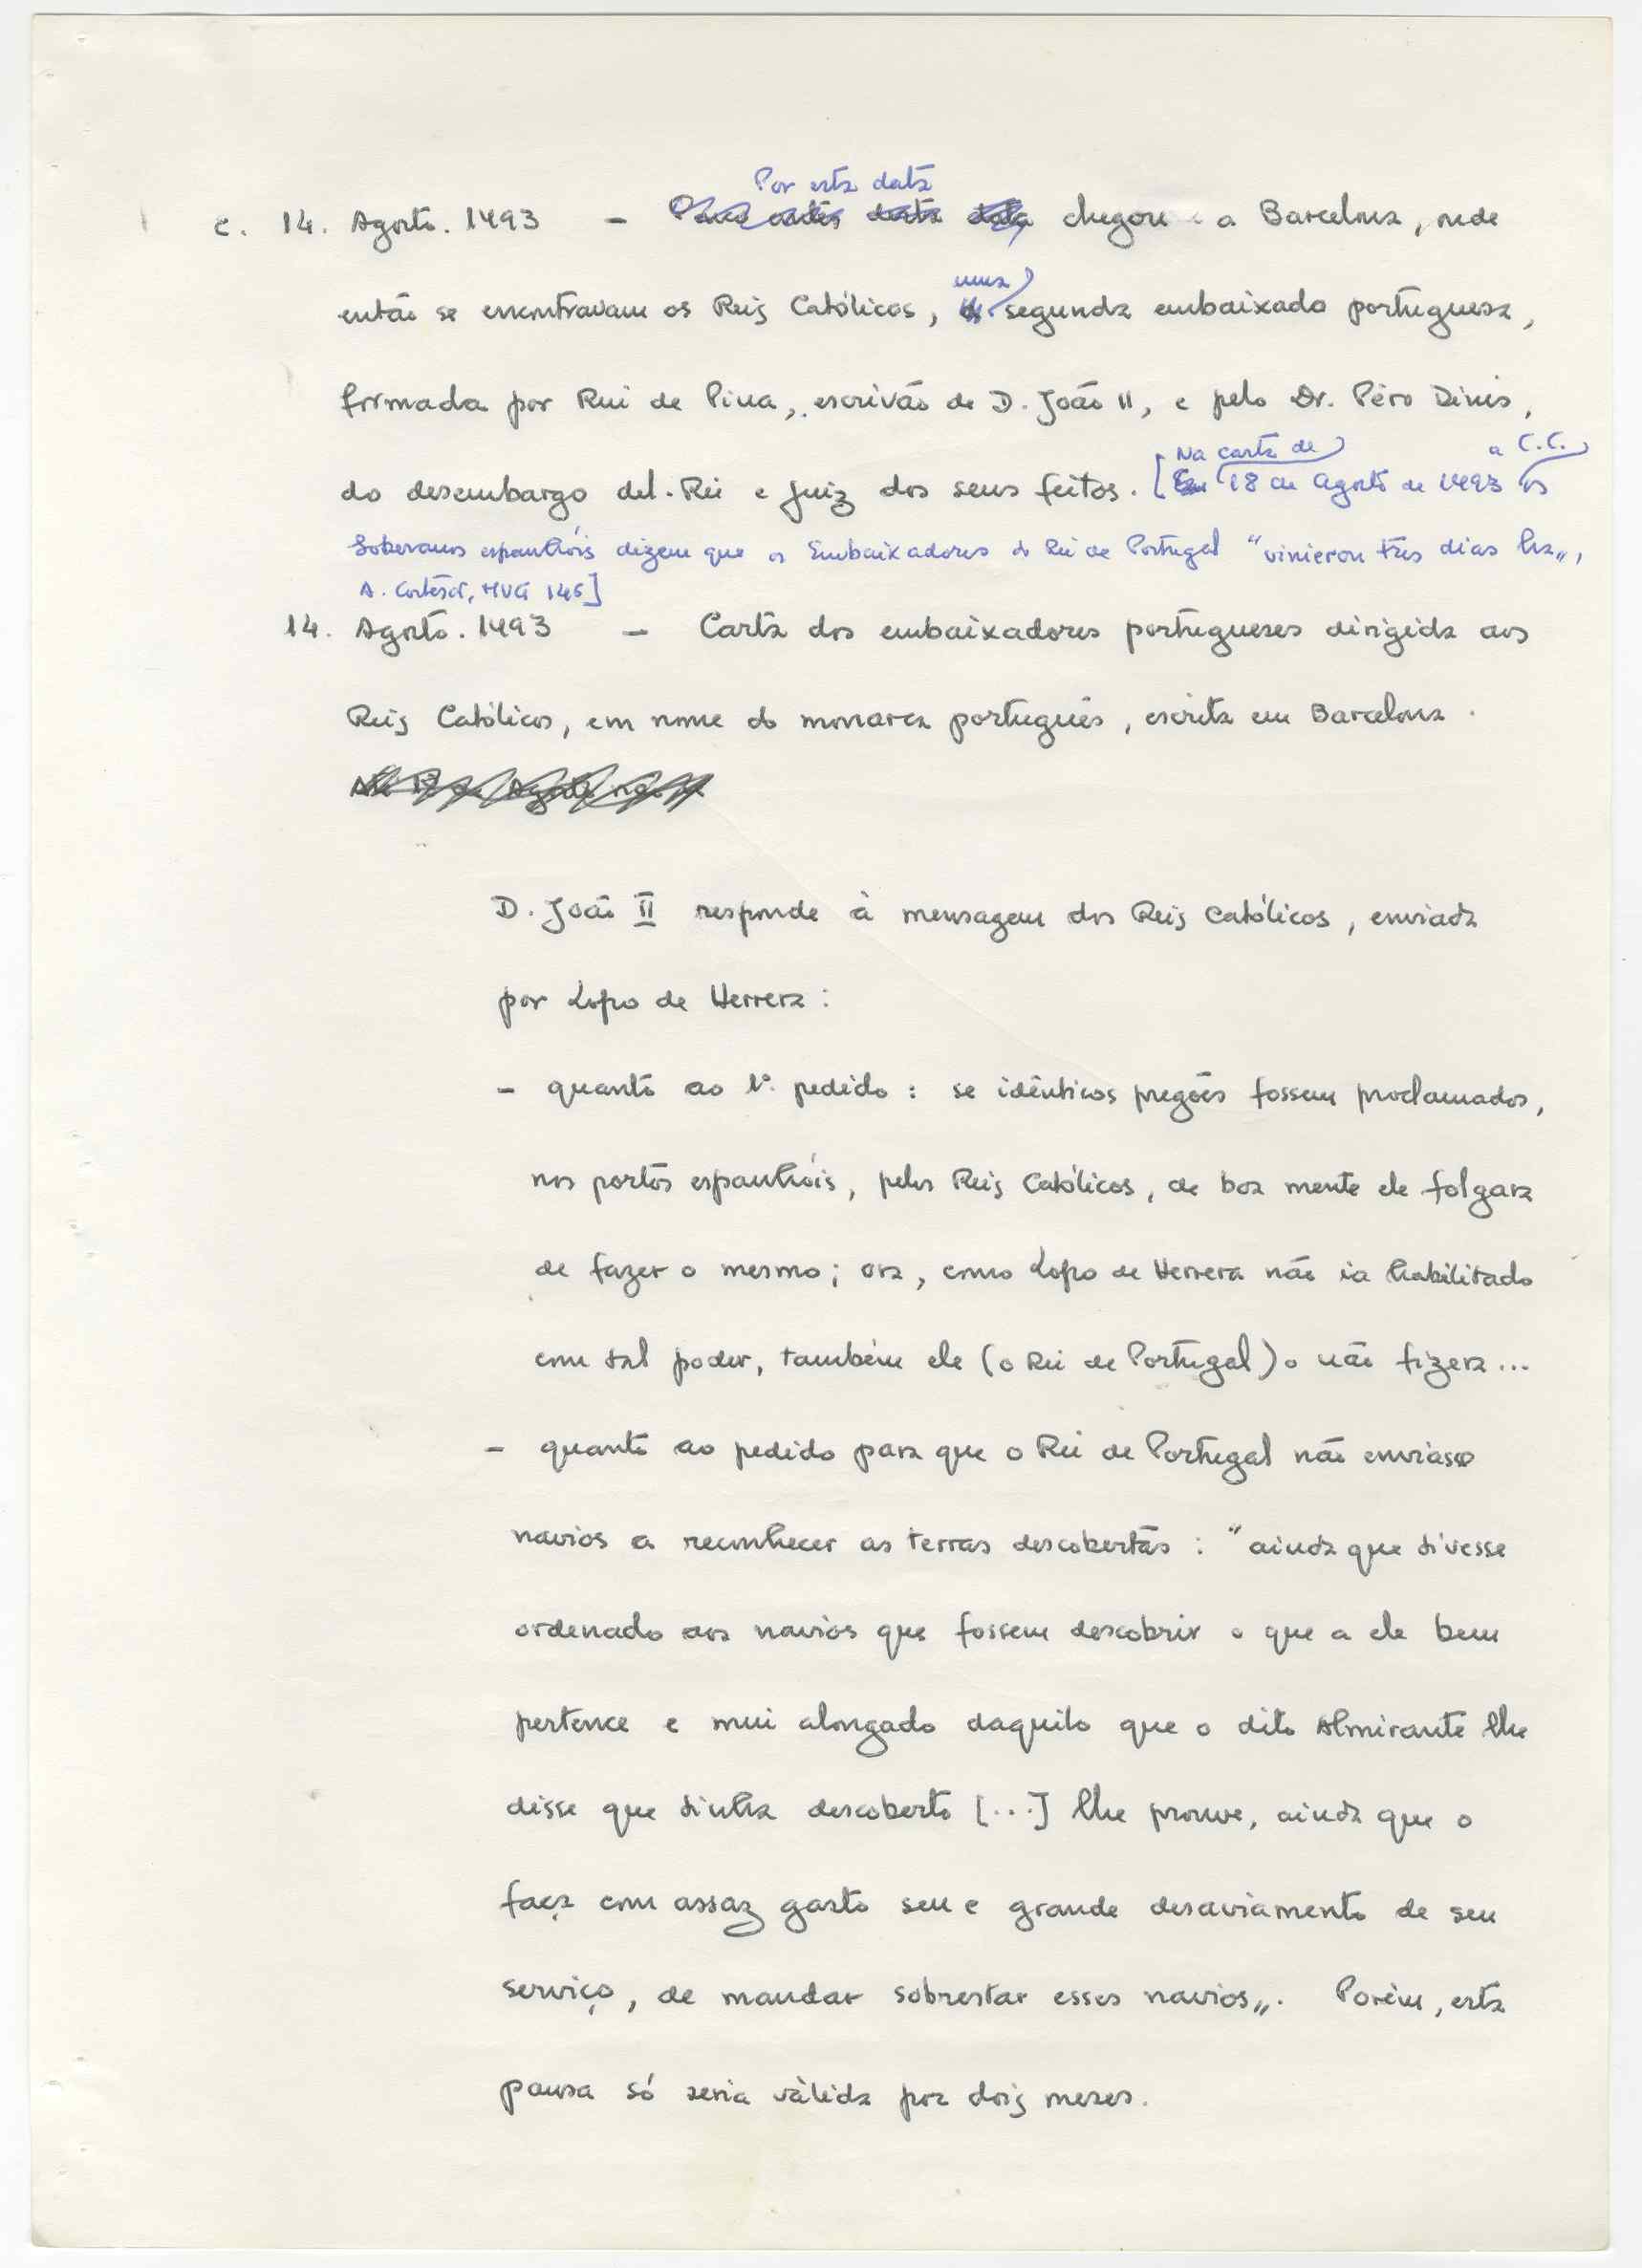 Por esta data
c. 14. Agosto. 1493 - Pouco antes desta data chegou a Barcelona, onde
uma
então se encontravam os Reis Católicos, segunda embaixada portuguesa,
formada por Rui de Pina, escrivão de D. João II, e pelo Dr. Pêro Dinis,
Na carta de a C.C.
do desembargo del-Rei e juiz dos seus feitos. [Em 18 de Agosto de 1493 os
Soberanos espanhóis dizem que os Embaixadores do Rei de Portugal "vinieron três dias ha",
A. Cortesão, MVG 146]
14. Agosto. 1493 - Carta dos embaixadores portugueses dirigida aos
Reis Católicos, em nome do monarca português, escrita em Barcelona.
D. João II responde à mensagem dos Reis Católicos, enviada
por Lopo de Herrera:
- quanto ao 1º. pedido: se idênticos pregões fossem proclamados,
nos portos espanhóis, pelos Reis Católicos, de boa mente ele folgara
de fazer o mesmo; ora, como Lopo de Herrera não ia habilitado
com tal poder, também ele (o Rei de Portugal) o não fizera...
- quanto ao pedido para que o Rei de Portugal não enviasse
navios a reconhecer as terras descobertas: "ainda que tivesse
ordenado aos navios que fossem descobrir o que a ele bem
pertence e mui alongado daquilo que o dito Almirante lhe
disse que tinha descoberto [...] lhe prouve, ainda que o
faça com assaz gasto seu e grande desaviamento de seu
serviço, de mandar sobrestar esses navios". Porém, esta
pausa só seria válida por dois meses.